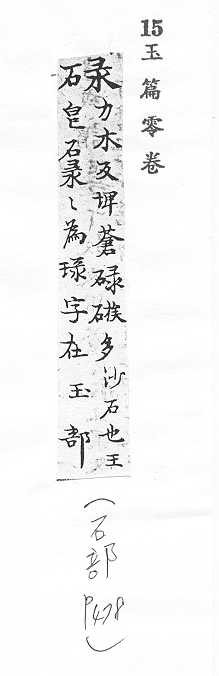 15玉篇零卷
碌力木反埤蒼碌多沙石也王
皀碌〻為琭字在玉部
(石部 P478)